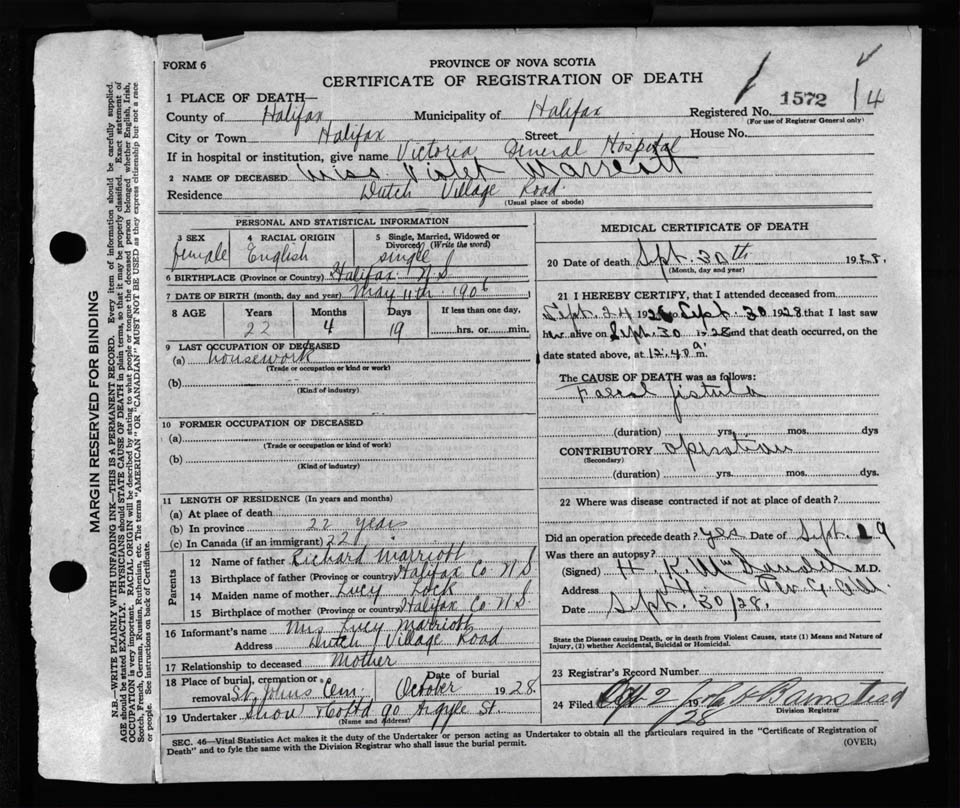 FORM 6
PROVINCE OF NOVA SCOTIA
CERTIFICATE OF REGISTRATION OF DEATH
1 PLACE OF DEATH—
County of Halifax Municipality of Halifax Registered No. 1572 14
(For use of Registrar General only)
City or Town Halifax Street House No.
If in hospital or institution, give name Victoria General Hospital
2 NAME OF DECEASED Miss Violet Marriott
Residence Dutch Village Road.
(Usual place of abode)
PERSONAL AND STATISTICAL INFORMATION
3 SEX 4 RACIAL ORIGIN 5 Single, Married, Widowed or Divorced (Write the word)
female English single
6 BIRTHPLACE (Province or Country) Halifax N.S.
7 DATE OF BIRTH (month, day and year) May 11th 1906
8 AGE Years Months Days If less than one day,
22 4 19 hrs. or min.
9 LAST OCCUPATION OF DECEASED
(a) housework
(Trade or occupation or kind or work)
(b)
(Kind of industry)
10 FORMER OCCUPATION OF DECEASED
(a)
(Trade or occupation or kind of work)
(b)
(Kind of industry)
11 LENGTH OF RESIDENCE (In years and months)
(a) At place of death
(b) In province 22 years
(c) In Canada (if an immigrant) 22
Parents
12 Name of father Richard Marriott
13 Birthplace of father (Province or country) Halifax Co N S
14 Maiden name of mother Lucy Lock
15 Birthplace of mother (Province or country) Halifax Co N S.
16 Informant's name Mrs Lucy Marriott
Address Dutch Village Road
17 Relationship to deceased Mother
18 Place of burial, cremation or removal St. Johns Cem. Date of burial October 1928.
19 Undertaker Snow & Co Ltd 90 Argyle St.
(Name and Address)
MEDICAL CERTIFICATE OF DEATH
20 Date of death Sept. 30th 1928.
(Month, day and year)
21 I HEREBY CERTIFY, that I attended deceased from
Sept. 24 1928 to Sept. 30 1928 that I last saw
her alive on Sept. 30 1928 and that death occurred, on the
date stated above, at 12.40 a m.
The CAUSE OF DEATH was as follows:
Faecal fistula
(duration) yrs. mos. dys
CONTRIBUTORY operation
(Secondary)
(duration) yrs. mos. dys.
22 Where was disease contracted if not at place of death?
Did an operation precede death? yes Date of Sept. 19
Was there an autopsy?
(Signed) H. K. McDonald M.D.
Address
Date Sept. 30/28.
State the Disease causing Death, or in death from Violent Causes, state (1) Means and Nature of
Injury, (2) whether Accidental, Suicidal or Homicidal.
23 Registrar's Record Number
24 Filed Oct 2 1928
Division Registrar
SEC. 46—Vital Statistics Act makes it the duty of the Undertaker or person acting as Undertaker to obtain all the particulars required in the "Certificate of Registration of
Death" and to fyle the same with the Division Registrar who shall issue the burial permit.
(OVER)
MARGIN RESERVED FOR BINDING
N.B.—WRITE PLAINLY WITH UNFADING INK—THIS IS A PERMANENT RECORD. Every item of information should be carefully supplied.
AGE should be stated EXACTLY. PHYSICIANS should STATE CAUSE OF DEATH in plain terms, so that it may be properly classified. Exact statement of
OCCUPATION is very important. RACIAL ORIGIN will be described by stating to what people or tongue the deceased person belonged whether English, Irish,
Scotch, French, German, Russian, Ruthenian, etc. The terms "AMERICAN" OR "CANADIAN" MUST NOT BE USED as they express citizenship but not a race
or people. See instructions on back of Certificate.